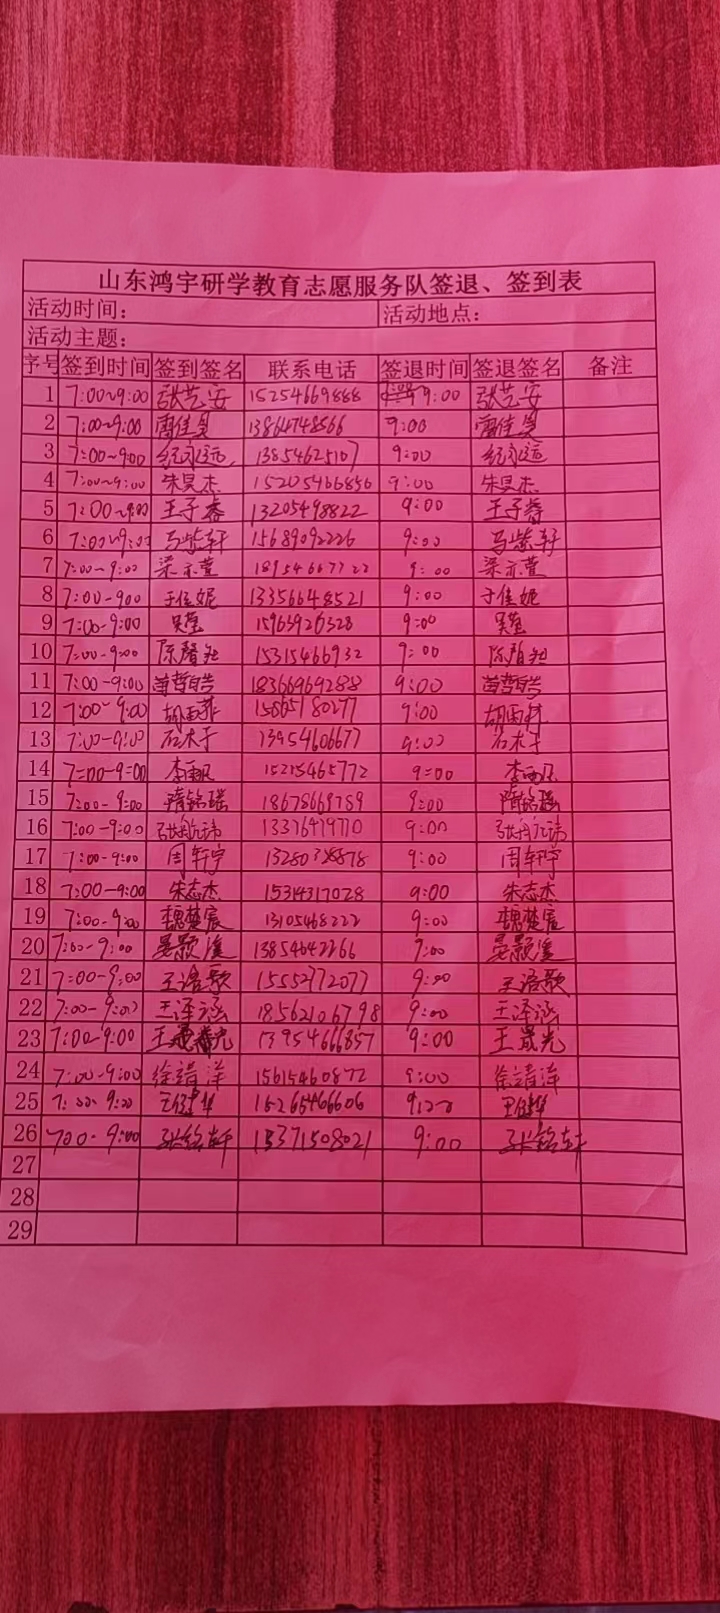 山东鸿宇研学教育志愿服务队签退、签到表
活动时间： 活动地点：
活动主题：
序号 签到时间 签到签名 联系电话 签退时间 签退签名 备注
1 7:00~9:00 张艺安 15254669888 9:00 张艺安
2 7:00~9:00 13864748566 9:00
3 7:00~9:00 纪永远 13854625107 9:00 纪永远
4 7:00~9:00 朱昊杰 15205466856 9:00 朱昊杰
5 7:00~9:00 王子睿 13205498822 9:00 王子睿
6 7:00~9:00 马紫轩 15689092226 9:00 马紫轩
7 7:00-9:00 梁亦萱 18954667722 9:00 梁亦萱
8 7:00-900 于佳妮 13356648521 9:00 于佳妮
9 7:00-9:00 15963926328 9:00
10 7:00-9:00 15315466932 9:00
11 7:00-9:00 苗哲皓 183669692888 9:00 苗哲皓
12 7:00-9:00 胡雨菲 15865180277 9:00 胡雨菲
13 7:00-9:00 石木子 13954606677 9:00 石木子
14 7=00-9=00 15215465772 9=00
15 7:00-9:00 隋铭瑶 18678669759 9:00 隋铭瑶
16 7:00-9:00 张航玮 13376419770 9:00 张航玮
17 7:00-9:00 周轩宇 9:00 周轩宇
18 7:00-9:00 朱志杰 15314317028 9:00 朱志杰
19 7:00-9:00 魏楚宸 13105468222 9:00 魏楚宸
20 7:00-9:00 13854642266 9:00
21 7:00-9:00 王洛歌 15552772077 9:00 王洛歌
22 7:00-9:00 王泽涵 18562106798 9:00 王泽涵
23 7:00-9:00 王晟光 13954666857 9:00 王晟光
24 7:00-9:00 徐靖洋 15615460872 9:00 徐靖洋
25 7:00-9:00 15265466606
26 700-9:00 张铭轩 15371508021 9:00 张铭轩
27
28
29